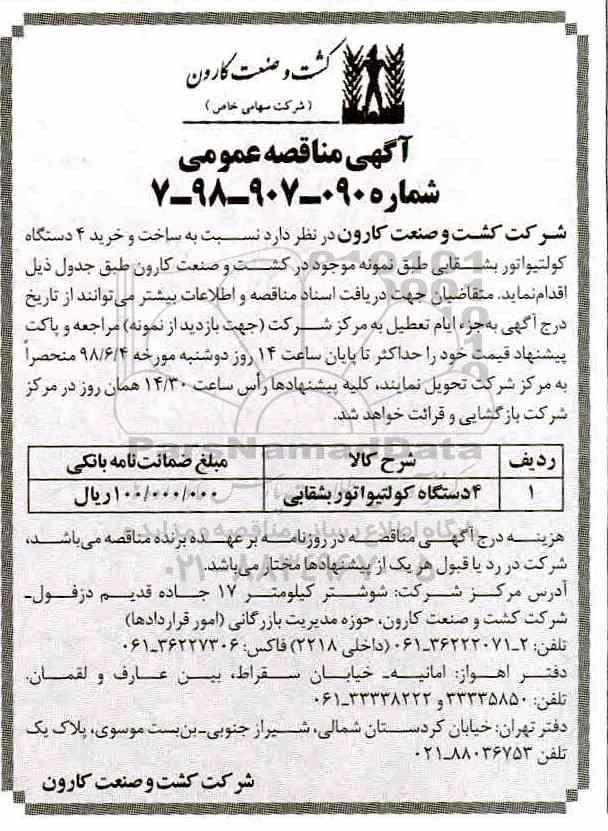 کشت و صنعت کارون
( شرکت سهامی خاص )
آگهی مناقصه عمومی
شماره ۰۹۰-۹۰۷-۹۸-۷
شرکت کشت و صنعت کارون در نظر دارد نسبت به ساخت و خرید ۴ دستگاه
کولتیواتور بشقابی طبق نمونه موجود در کشت و صنعت کارون طبق جدول ذیل
اقدام نماید. متقاضیان جهت دریافت اسناد مناقصه و اطلاعات بیشتر می‌توانند از تاریخ
درج آگهی به‌جزء ایام تعطیل به مرکز شرکت (جهت بازدید از نمونه) مراجعه و پاکت
پیشنهاد قیمت خود را حداکثر تا پایان ساعت ۱۴ روز دوشنبه مورخه ۹۸/۶/۴ منحصراً
به مرکز شرکت تحویل نمایند، کلیه پیشنهادها رأس ساعت ۱۴/۳۰ همان روز در مرکز
شرکت بازگشایی و قرائت خواهد شد.
ردیف شرح کالا مبلغ ضمانت‌نامه بانکی
۱ ۴دستگاه کولتیواتور بشقابی ۱۰۰/۰۰۰/۰۰۰ ریال
هزینه درج آگهی مناقصه در روزنامه بر عهده برنده مناقصه می‌باشد،
شرکت در رد یا قبول هر یک از پیشنهادها مختار می‌باشد.
آدرس مرکز شرکت: شوشتر کیلومتر ۱۷ جاده قدیم دزفول-
شرکت کشت و صنعت کارون، حوزه مدیریت بازرگانی (امور قراردادها)
تلفن: ۲-۳۶۲۲۲۰۷۱-۰۶۱ (داخلی ۲۲۱۸) فاکس: ۳۶۲۲۷۳۰۶-۰۶۱
دفتر اهواز: امانیه- خیابان سقراط، بین عارف و لقمان.
تلفن: ۳۳۳۳۵۸۵۰ و ۳۳۳۳۸۲۲۲-۰۶۱
دفتر تهران: خیابان کردستان شمالی، شیراز جنوبی-بن‌بست موسوی، پلاک یک
تلفن ۸۸۰۳۶۷۵۳-۰۲۱
شرکت کشت و صنعت کارون
ParsNamadData
پایگاه اطلاع رسانی مناقصه و مزایده